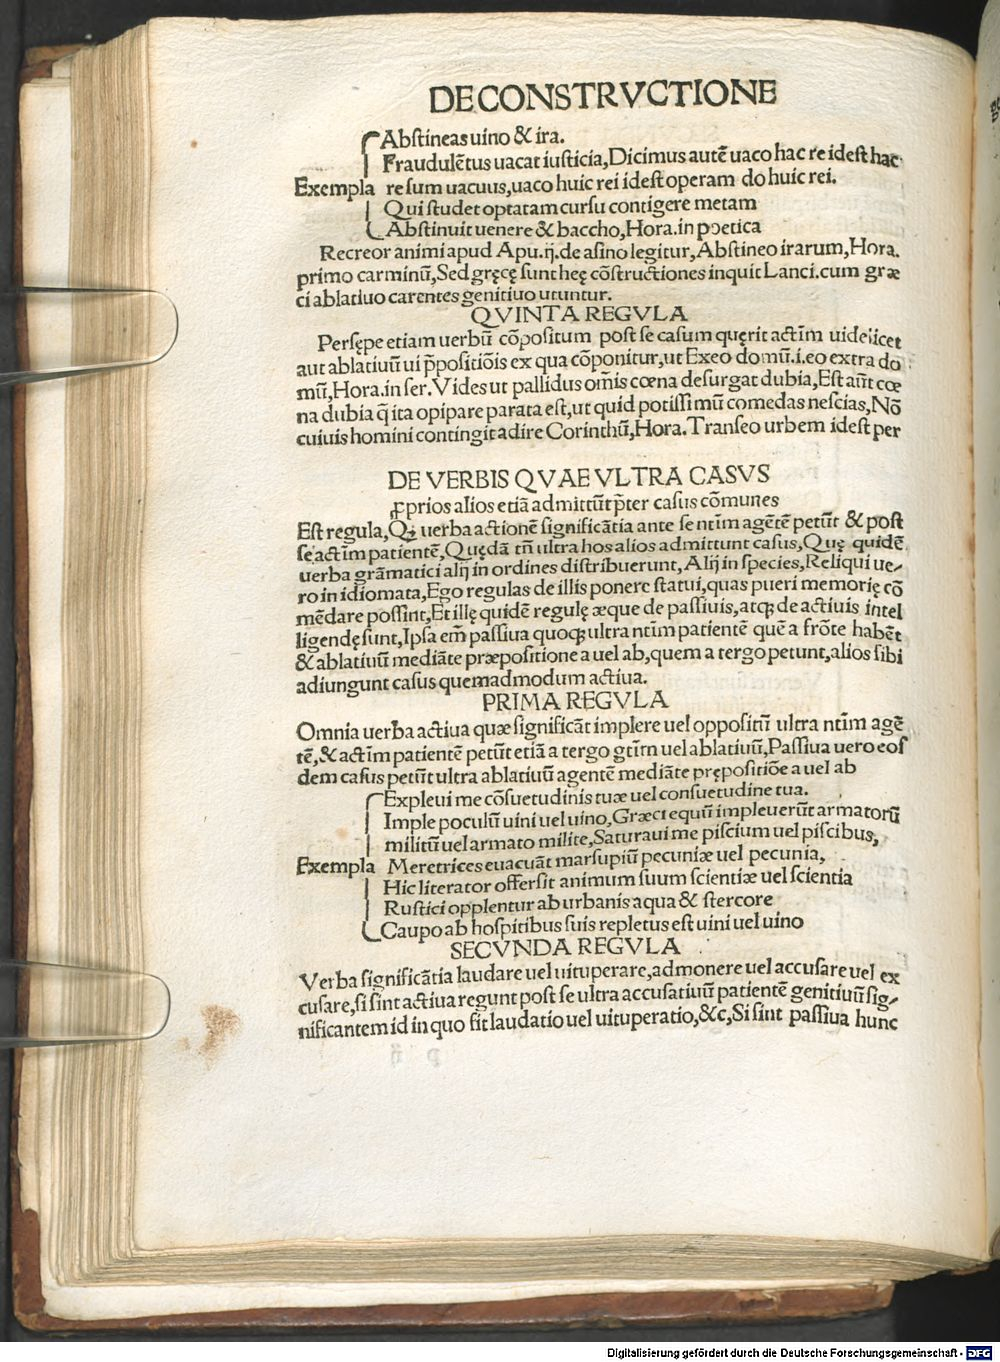 DE CONSTRVCTIONE
Abstineas uino & ira.
Fraudulētus uacat iusticia, Dicimus autē uaco hac re idest hac
Exempla re sum uacuus, uaco huic rei idest operam do huic rei.
Qui studet optatam cursu contigere metam
Abstinuit uenere & baccho, Hora. in poetica
Recreor animi apud Apu. ij. de asino legitur, Abstineo irarum, Hora.
primo carminū, Sed gręcę sunt heę cōstructiones inquit Lanci. cum græ
ci ablatiuo carentes genitiuo utuntur.
QVINTA REGVLA
Persępe etiam uerbū cōpositum post se casum quęrit actīm uidelicet
aut ablatiuū ui p̄positiōis ex qua cōponitur, ut Exeo domū .i. eo extra do
mū, Hora. in ser. Vides ut pallidus om̄is cœna desurgat dubia, Est aūt cœ
na dubia q̄ ita opipare parata est, ut quid potissimū comedas nescias, Nō
cuiuis homini contingit adire Corinthū, Hora. Transeo urbem idest per
DE VERBIS QVAE VLTRA CASVS
ꝓprios alios etiā admittūt p̄ter casus cōmunes
Est regula, Qꝫ uerba actionē significātia ante se ntīm agētē petūt & post
se actīm patientē, Quędā tn̄ ultra hos alios admittunt casus, Quę quidē
uerba grāmatici alij in ordines distribuerunt, Alij in species, Reliqui ue-
ro in idiomata, Ego regulas de illis ponere statui, quas pueri memorię cō
mēdare possint, Et illę quidē regulę æque de passiuis, atqꝫ de actiuis intel
ligendę sunt, Ipsa em̄ passiua quoqꝫ ultra ntīm patientē quē a frōte habēt
& ablatiuū mediāte præpositione a uel ab, quem a tergo petunt, alios sibi
adiungunt casus quemadmodum actiua.
PRIMA REGVLA
Omnia uerba actiua quæ significāt implere uel oppositū ultra ntīm agē
tē, & actīm patientē petūt etiā a tergo gtūm uel ablatiuū, Passiua uero eos
dem casus petūt ultra ablatiuū agentē mediāte prępositiōe a uel ab
Expleui me cōsuetudinis tuæ uel consuetudine tua.
Imple poculū uini uel uino, Græci equū impleuerūt armatorū
militū uel armato milite, Saturaui me piscium uel piscibus,
Exempla Meretrices euacuāt marsupiū pecuniæ uel pecunia,
Hic literator offersit animum suum scientiæ uel scientia
Rustici opplentur ab urbanis aqua & stercore
Caupo ab hospitibus suis repletus est uini uel uino
SECVNDA REGVLA
Verba significātia laudare uel uituperare, admonere uel accusare uel ex
cusare, si sint actiua regunt post se ultra accusatiuū patientē genitiuū sig-
nificantem id in quo fit laudatio uel uituperatio, &c, Si sint passiua hunc
Digitalisierung gefördert durch die Deutsche Forschungsgemeinschaft - DFG